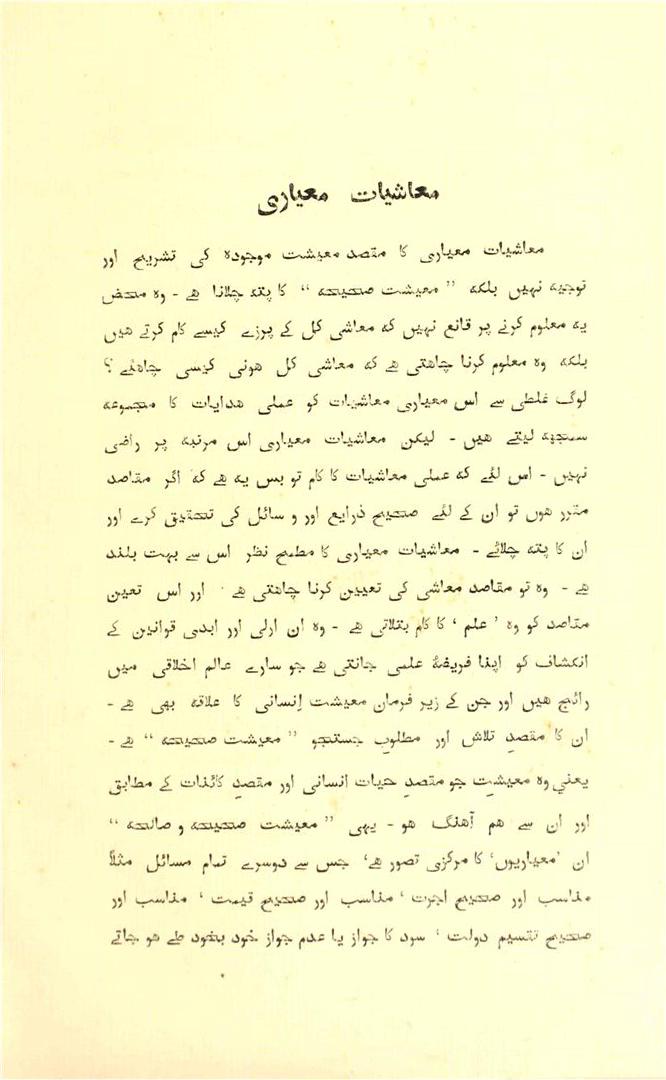 معاشیات معیاری
معاشیات معیاری کا مقصد معیشت موجودہ کی تشریح اور
توجیه نہیں بلکه ” معیشت صحیحه “ کا پته چلانا هے - وہ محض
یه معلوم کرنے پر قانع نہیں که معاشی کل کے پرزے کیسے کام کرتے هیں
بلکه وہ معلوم کرنا چاهتی هے که معاشی کل هونی کیسی چاهئے ؟
لوگ غلطی سے اس معیاری معاشیات کو عملی هدایات کا مجموعه
سمجهه لیتے هیں - لیکن معاشیات معیاری اس مرتبه پر راضی
نہیں - اس لئے که عملی معاشیات کا کام تو بس یه هے که اگر مقاصد
مقرر هوں تو ان کے لئے صحیح ذرایع اور و سائل کی تحقیق کرے اور
ان کا پته چلائے - معاشیات معیاری کا مطمح نظر اس سے بہت بلند
هے - وہ تو مقاصد معاشی کی تعیین کرنا چاهتی هے ' اور اس تعین
مقاصد کو وہ ’ علم ‘ کا کام بتلاتی هے - وہ ان ازلی اور ابدی قوانین کے
انکشاف کو اپنا فریضۂ علمی جانتی هے جو سارے عالم اخلاقی میں
رائج هیں اور جن کے زیر فرمان معیشت اِنسانی کا علاقه بهی هے -
ان کا مقصدِ تلاش اور مطلوبِ جستجو ” معیشت صحیحه “ هے -
یعنی وہ معیشتِ جو مقصدِ حیات انسانی اور مقصدِ کائنات کے مطابق
اور ان سے هم آهنگ هو - یہی ” معیشت صحیحه و صالحه “
ان ’معیاریوں‘ کا مرکزی تصور هے‘ جس سے دوسرے تمام مسائل مثلاً
مناسب اور صحیح اجرت ‘ مناسب اور صحیح قیمت ‘ مناسب اور
صحیح تقسیم دولت ‘ سود کا جواز یا عدم جواز خود بخود طے هو جاتے